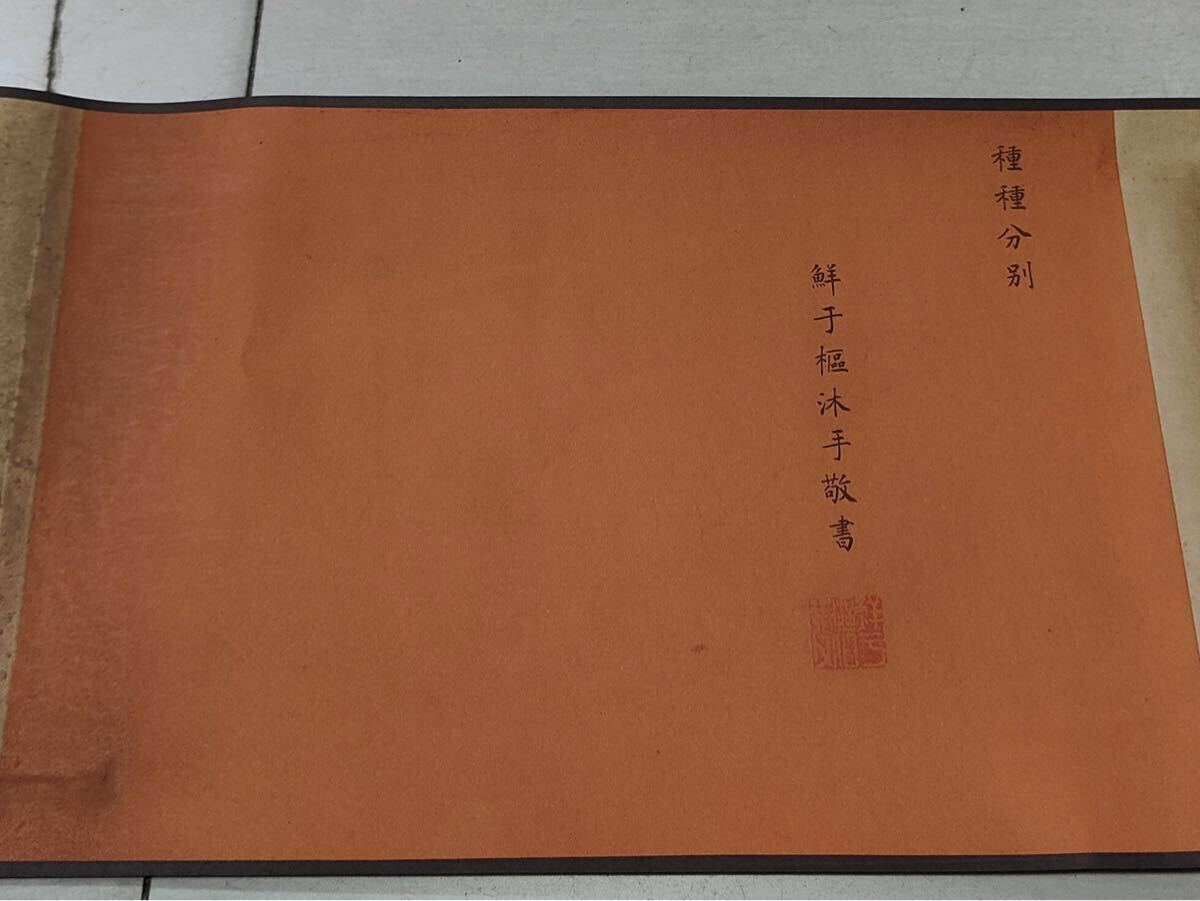 種種分别
鮮于樞沐手敬書